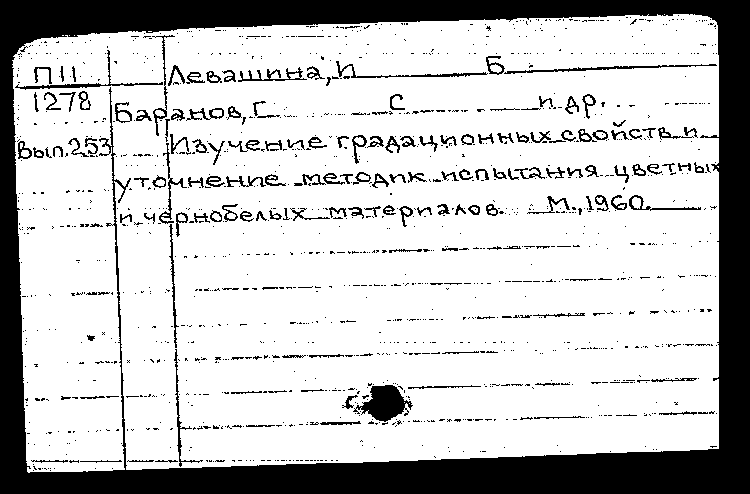 П11 Левашина, И Б
1278 Баранов, Г С и др.
Вып.253 Изучение градационных свойств и
уточнение методик испытания цветных
и чернобелых материалов. М., 1960.